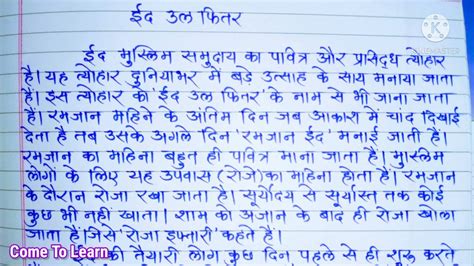 ईद उल फितर
ईद मुस्लिम समुदाय का पवित्र और प्रसिद्ध त्योहार
है। यह त्योहार दुनियाभर में बड़े उत्साह के साथ मनाया जाता
है। इस त्योहार को 'ईद उल फितर' के नाम से भी जाना जाता
है। रमजान महिने के अंतिम दिन जब आकाश में चांद दिखाई
देता है तब उसके अगले दिन 'रमजान ईद' मनाई जाती है।
रमजान का महिना बहुत ही पवित्र माना जाता है। मुस्लिम
लोगों के लिए यह उपवास (रोजे) का महिना होता है। रमजान
के दौरान रोजा रखा जाता है। सूर्योदय से सूर्यास्त तक कोई
कुछ भी नहीं खाता। शाम को अजान के बाद ही रोजा खोला
जाता है जिसे 'रोजा इफ्तारी' कहते है।
ईद की तैयारी लोग कुछ दिन पहले से ही शुरू करते
Come To Learn
KINEMASTER